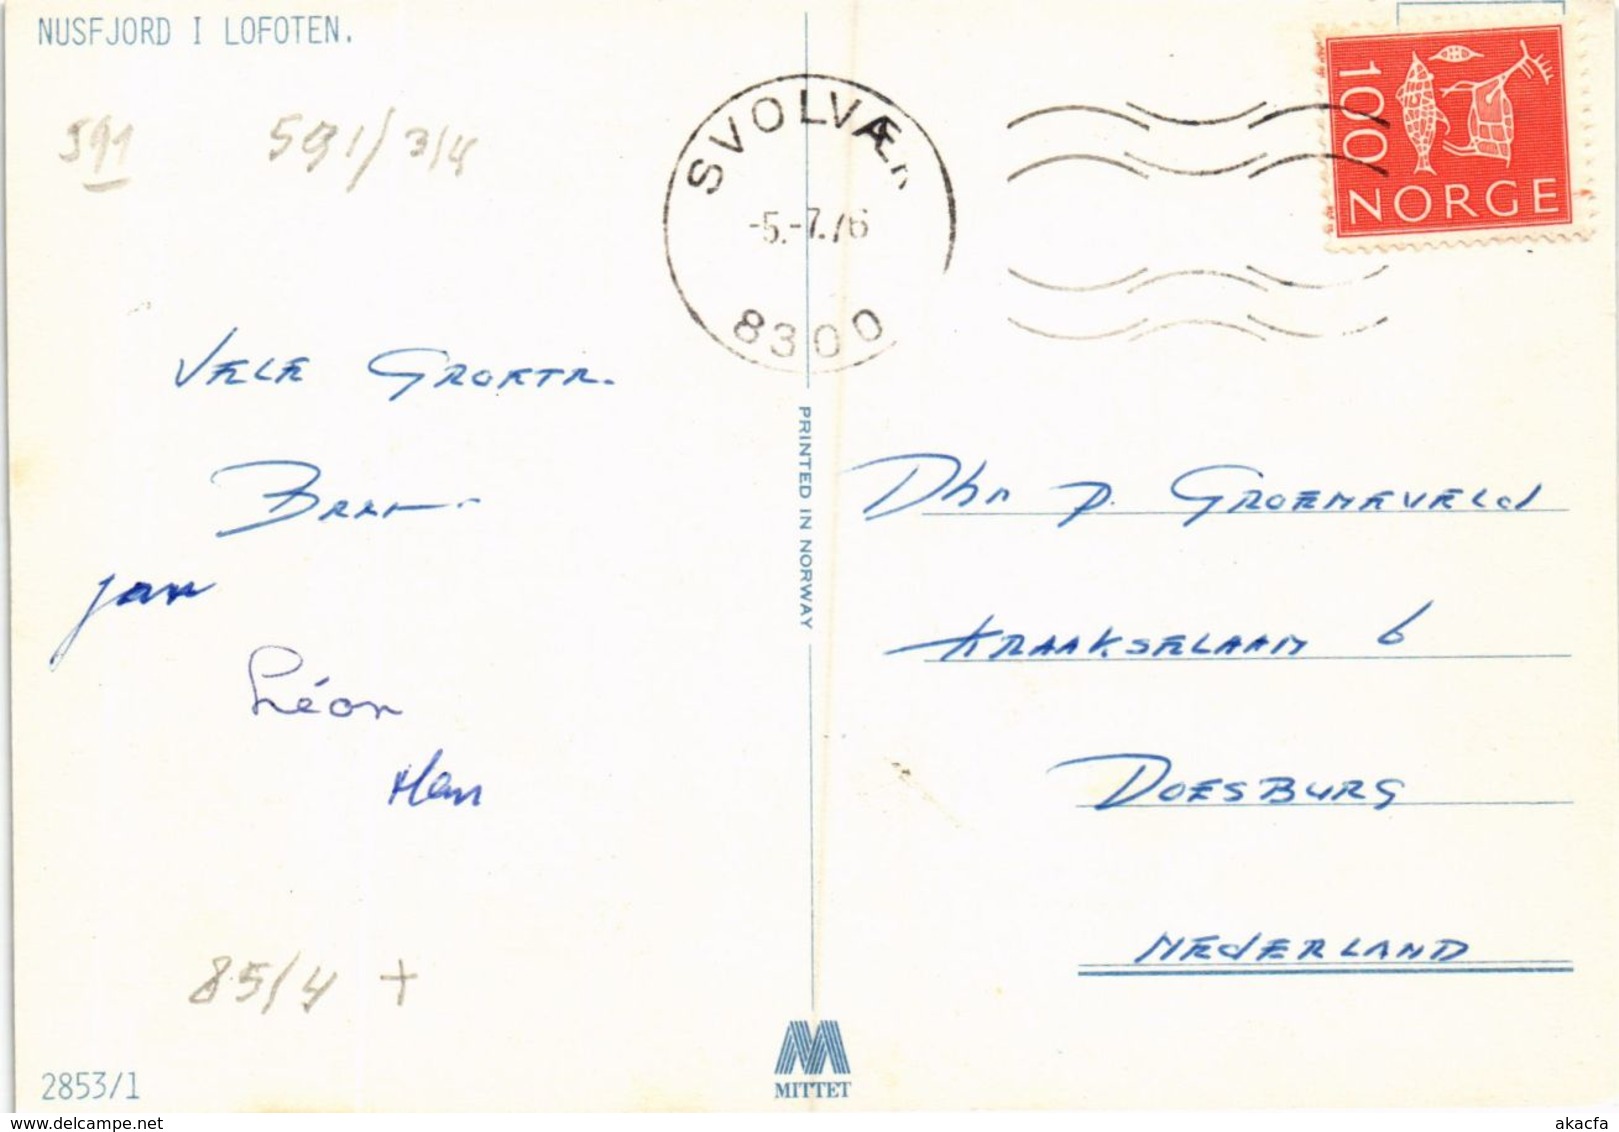 NUSFJORD I LOFOTEN.
591
591/3/4
SVOLVÆR
-5.-7.76
8300
100
NORGE
VELE GROETR.
Jan
Léon
Han
Dhr P. GROENEVELd
KRAAKSELAAN 6
DOESBURG
NEdERLAND
PRINTED IN NORWAY
85/4 +
MITTET
2853/1
www.delcampe.net
akacfa